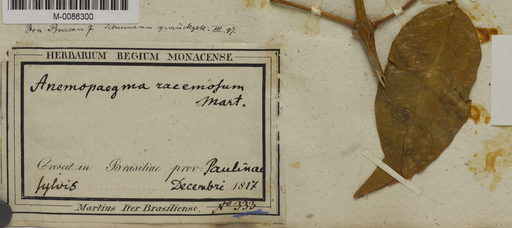 M-0086300
Von Bureau & Schumann zurückgek. III. 97.
HERBARIUM REGIUM MONACENSE
Anemopaegma racemosum
Mart.
Crescit in Brasiliae prov. Paulinae
sylvis Decembri 1817
Martius Iter Brasiliense. No 333